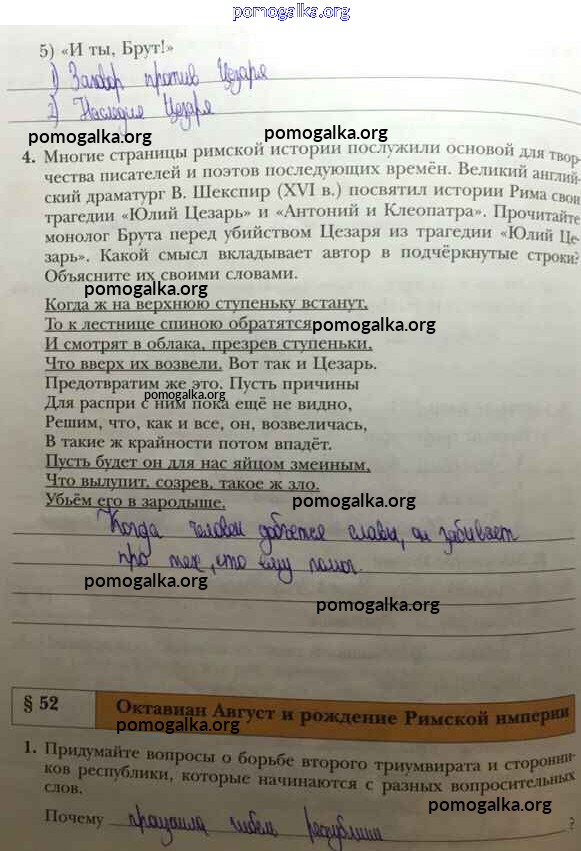 pomogalka.org
5) «И ты, Брут!»
1) Заговор против Цезаря
2) Наследия Цезаря
pomogalka.org pomogalka.org
4. Многие страницы римской истории послужили основой для твор-
чества писателей и поэтов последующих времён. Великий англий-
ский драматург В. Шекспир (XVI в.) посвятил истории Рима свои
трагедии «Юлий Цезарь» и «Антоний и Клеопатра». Прочитайте
монолог Брута перед убийством Цезаря из трагедии «Юлий Це-
зарь». Какой смысл вкладывает автор в подчёркнутые строки?
Объясните их своими словами.
pomogalka.org
Когда ж на верхнюю ступеньку встанут,
То к лестнице спиною обратятся pomogalka.org
И смотрят в облака, презрев ступеньки,
Что вверх их возвели. Вот так и Цезарь.
Предотвратим же это. Пусть причины
pomogalka.org
Для распри с ним пока ещё не видно,
Решим, что, как и все, он, возвеличась,
В такие ж крайности потом впадёт.
Пусть будет он для нас яйцом змеиным,
Что вылупит, созрев, такое ж зло.
Убьём его в зародыше. pomogalka.org
Когда человек добьется славы, он забывает
про тех, кто ему помог.
pomogalka.org
pomogalka.org
§ 52 Октавиан Август и рождение Римской империи
pomogalka.org
1. Придумайте вопросы о борьбе второго триумвирата и сторонни-
ков республики, которые начинаются с разных вопросительных
слов.
pomogalka.org
Почему произошла гибель республики ?